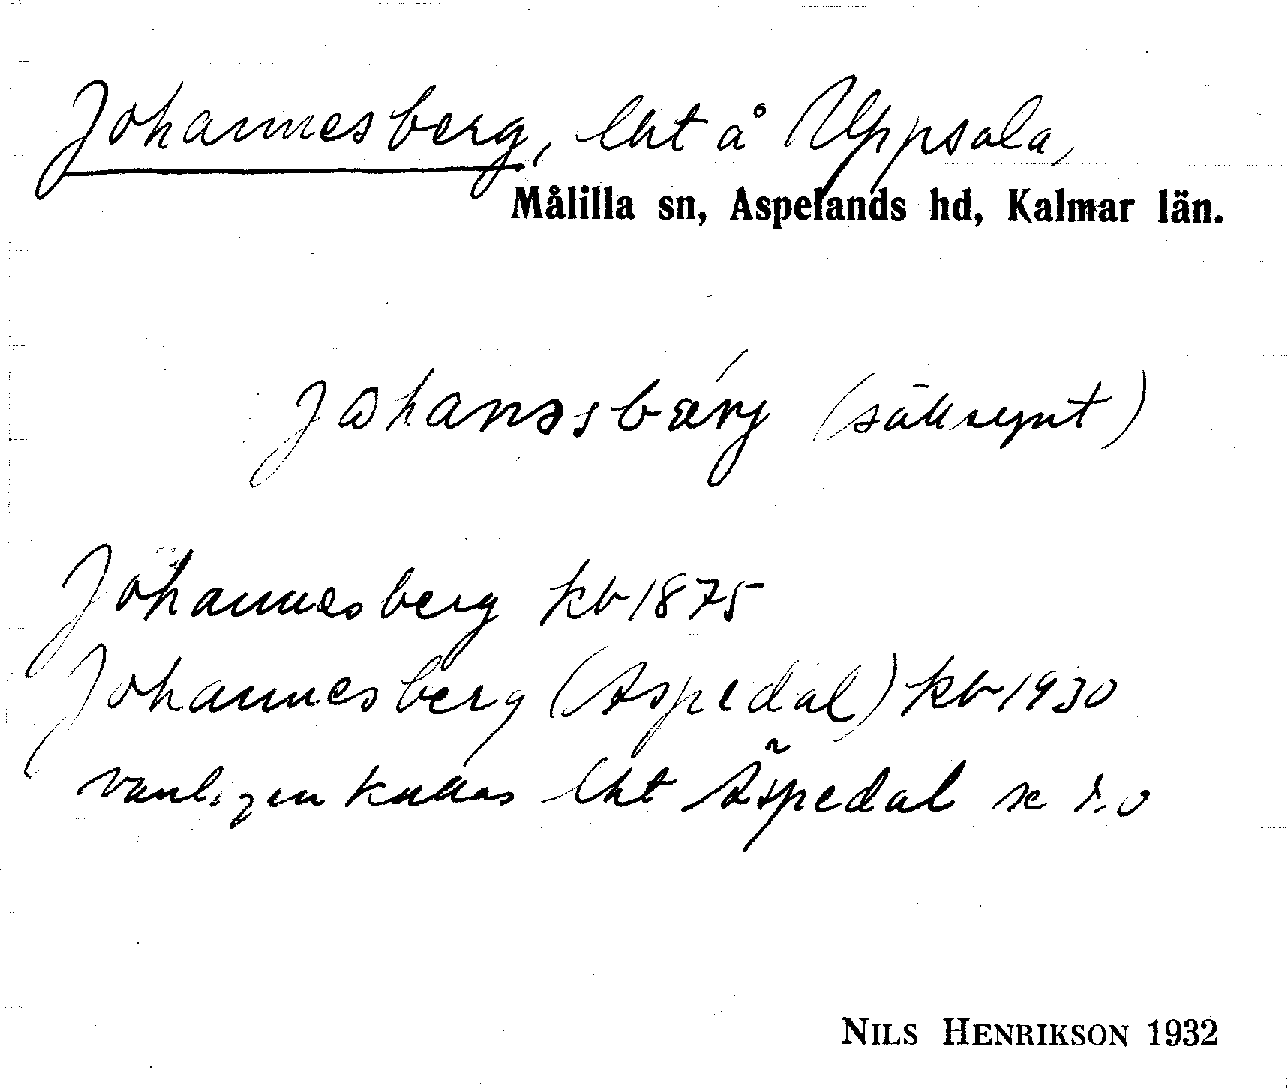 Johannesberg, lht å Uppsala,
Målilla sn, Aspelands hd, Kalmar län.
johanəsbærj (sällsynt)
Johannesberg kb 1875
Johannesberg (Aspedal) kb 1930
vanligen kallas lht Äspedal se d.o
NILS HENRIKSON 1932